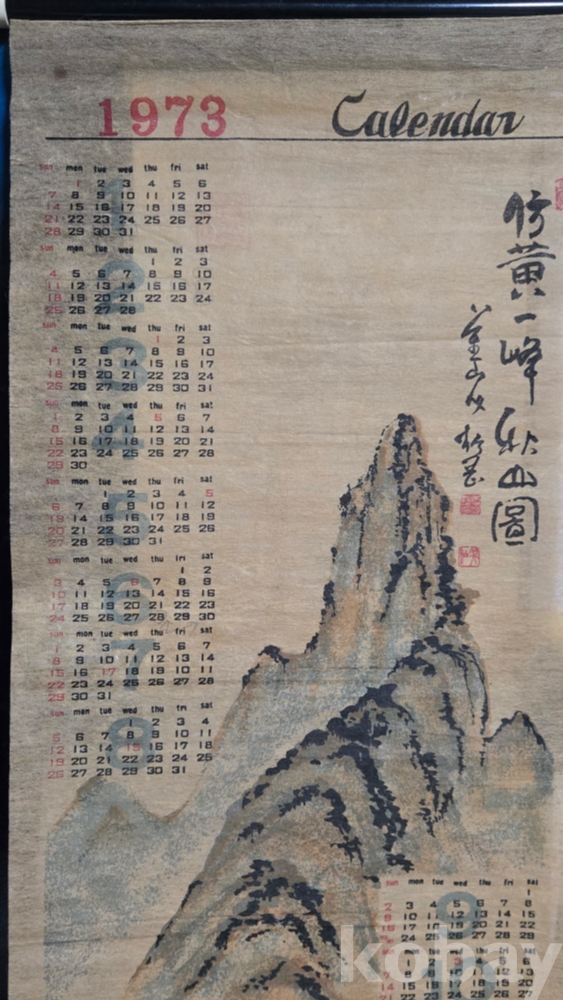 1973 Calendar
sun mon tue wed thu fri sat
1 2 3 4 5 6
7 8 9 10 11 12 13
14 15 16 17 18 19 20
21 22 23 24 25 26 27
28 29 30 31
sun mon tue wed thu fri sat
1 2 3
4 5 6 7 8 9 10
11 12 13 14 15 16 17
18 19 20 21 22 23 24
25 26 27 28
sun mon tue wed thu fri sat
1 2 3
4 5 6 7 8 9 10
11 12 13 14 15 16 17
18 19 20 21 22 23 24
25 26 27 28 29 30 31
sun mon tue wed thu fri sat
1 2 3 4 5 6 7
8 9 10 11 12 13 14
15 16 17 18 19 20 21
22 23 24 25 26 27 28
29 30
sun mon tue wed thu fri sat
1 2 3 4 5
6 7 8 9 10 11 12
13 14 15 16 17 18 19
20 21 22 23 24 25 26
27 28 29 30 31
sun mon tue wed thu fri sat
1 2
3 4 5 6 7 8 9
10 11 12 13 14 15 16
17 18 19 20 21 22 23
24 25 26 27 28 29 30
sun mon tue wed thu fri sat
1 2 3 4 5 6 7
8 9 10 11 12 13 14
15 16 17 18 19 20 21
22 23 24 25 26 27 28
29 30 31
sun mon tue wed thu fri sat
1 2 3 4
5 6 7 8 9 10 11
12 13 14 15 16 17 18
19 20 21 22 23 24 25
26 27 28 29 30 31
仿黃一峰秋山圖
sun mon tue wed thu fri sat
1
2 3 4 5 6 7 8
9 10 11 12 13 14 15
16 17 18 19 20 21 22
mon tue wed thu fri sat
1 2 3 4 5 6
kobay